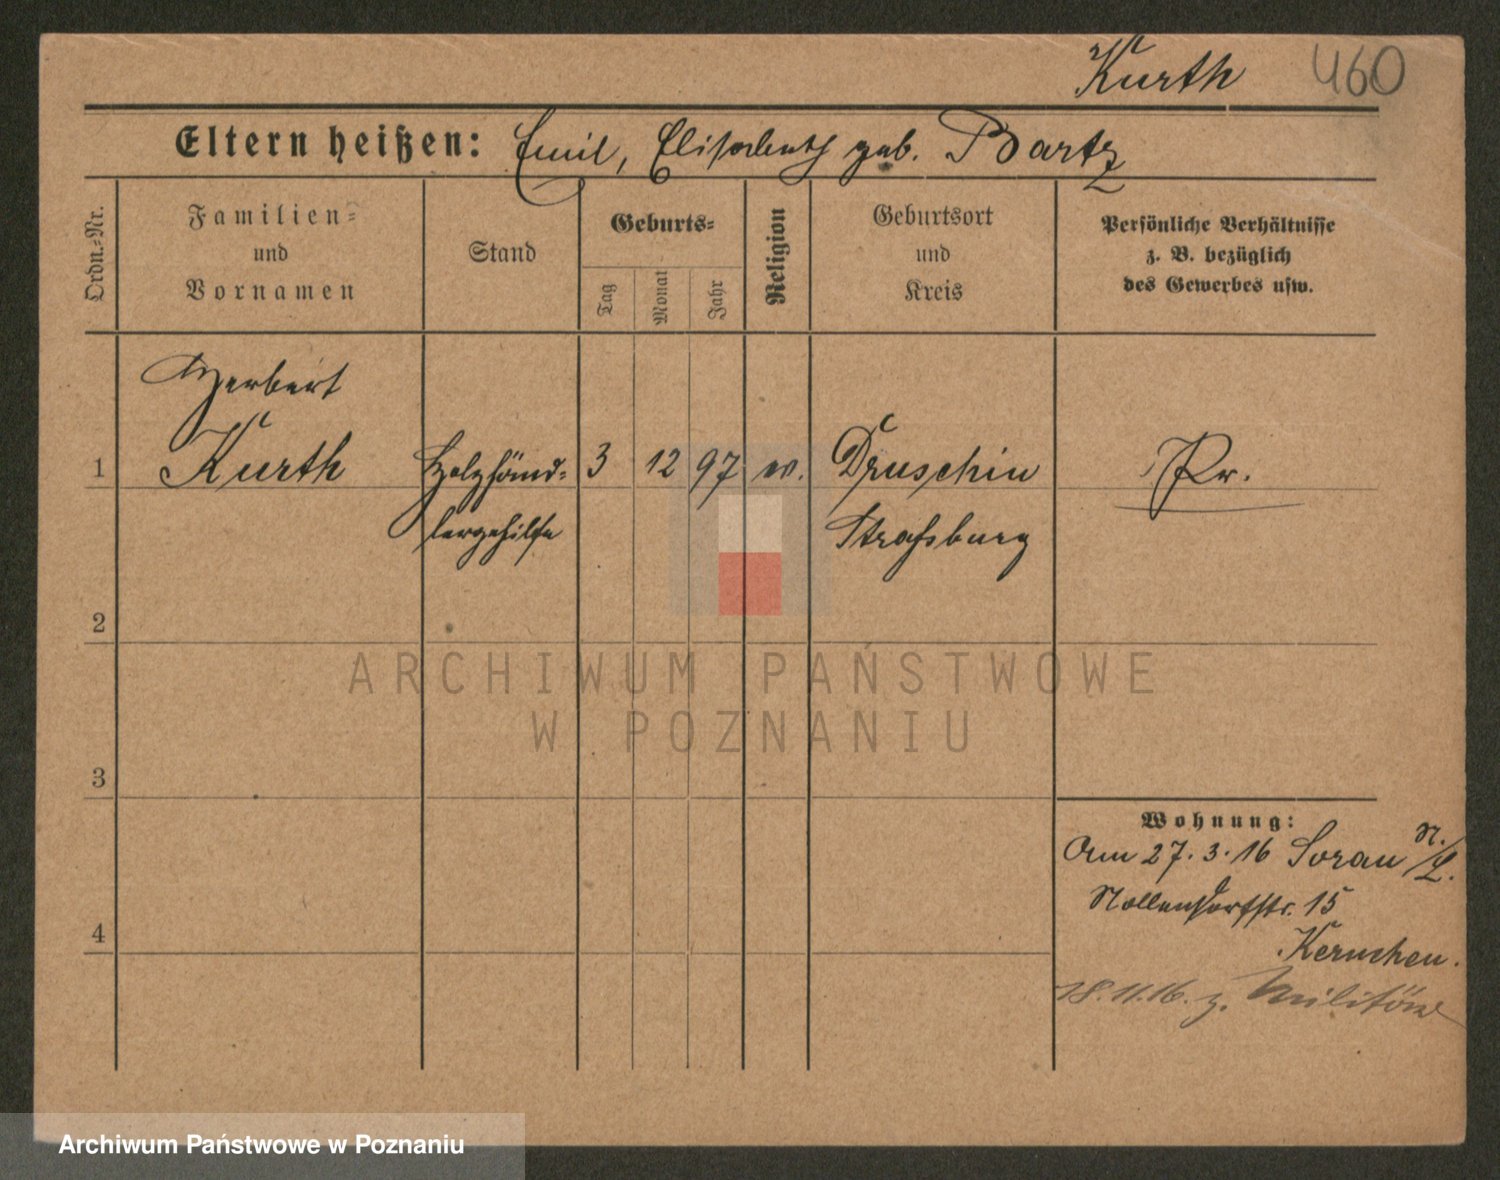 Kurth 460
Eltern heißen: Emil, Elisabeth geb. Bartz
Ordn.-Nr.
Familien-
und
Vornamen
Stand
Geburts-
Tag
Monat
Jahr
Religion
Geburtsort
und
Kreis
Persönliche Verhältnisse
z. B. bezüglich
des Gewerbes usw.
Herbert
1 Kurth Holzhänd- 3 12 97 ev. Druschin Pr.
lergehilfe Straſsburg
2
3
4
Wohnung:
Am 27.3.16 Sorau N./L.
Nollendorfstr. 15
Kernchen.
18.11.16. z. Militär
ARCHIWUM PAŃSTWOWE
W POZNANIU
Archiwum Państwowe w Poznaniu